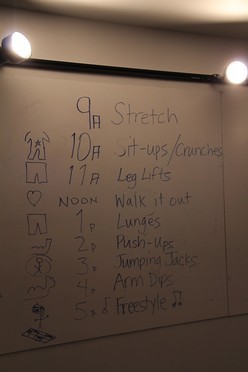 9A Stretch
10A Sit-ups/Crunches
11A Leg Lifts
NOON Walk it out
1P Lunges
2P Push-Ups
3P Jumping Jacks
4P Arm Dips
5P Freestyle